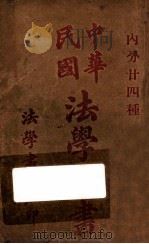 内分廿四種
中華
民國
法學書
法學